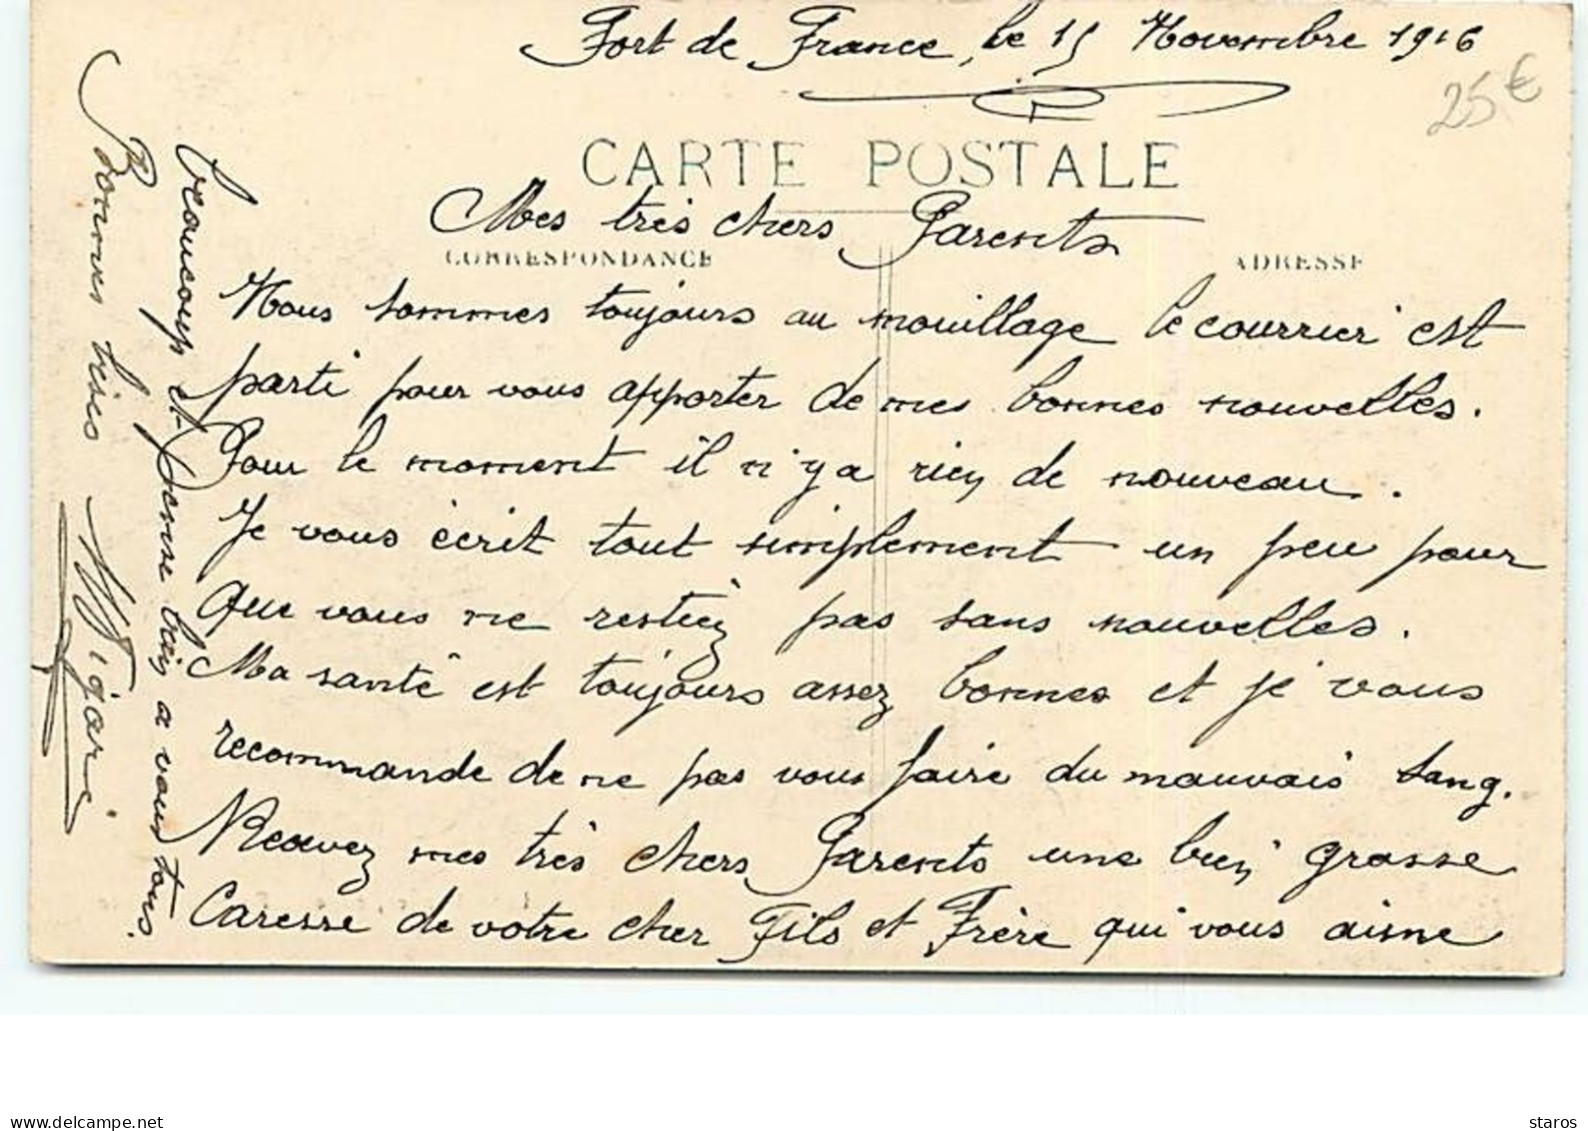 Fort de France, le 15 Novembre 1916
25€
CARTE POSTALE
Mes très chers Parents
CORRESPONDANCE
ADRESSE
Nous sommes toujours au mouillage le courrier est
parti pour vous apporter de mes bonnes nouvelles.
Pour le moment il n'y a rien de nouveau.
Je vous écrit tout simplement un peu pour
que vous ne restiez pas sans nouvelles.
Ma santé est toujours assez bonnes et je vous
recommande de ne pas vous faire du mauvais sang.
Recevez mes très chers Parents une bien grosse
Caresse de votre cher Fils et Frère qui vous aime
beaucoup et pense bien a vous tous.
Bonnes bises
delcampe.net
staros